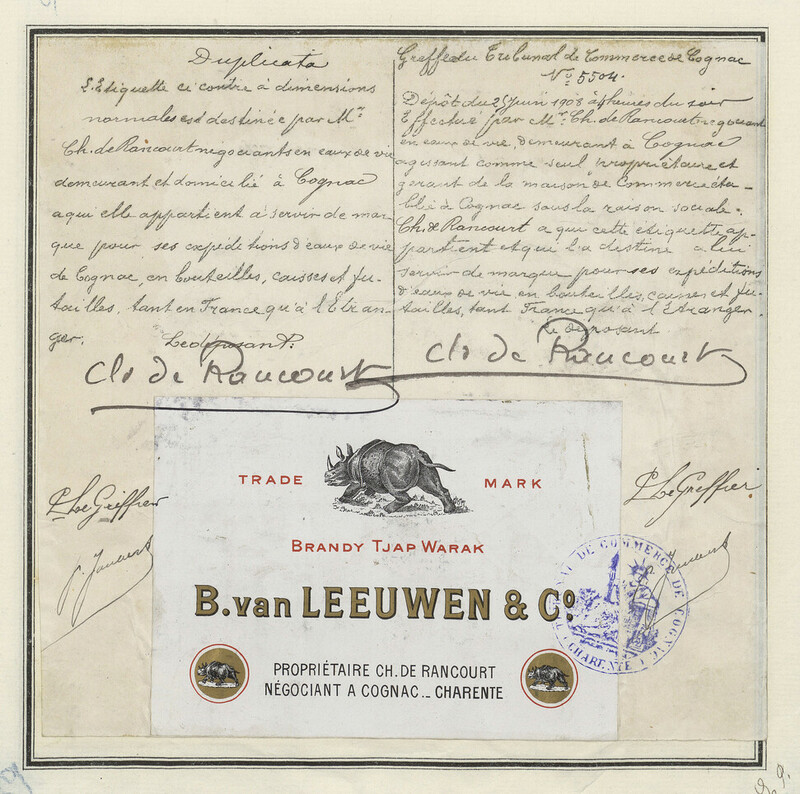 Duplicata
L'Etiquette ci contre à dimensions
normales est destinée par Mr
Ch. de Rancourt négociants en eaux de vie
demeurant et domicilié à Cognac
a qui elle appartient à servir de mar
que pour ses expéditions d'eaux de vie
de Cognac, en bouteilles, caisses et fu-
tailles, tant en France qu'à l'Etran-
ger.
Le déposant.
Ch de Rancourt
Greffe du Tribunal de Commerce de Cognac
No 5504.
Dépôt du 25 Juin 1908 à 4 heures du soir
Effectué par Mr Ch. de Rancourt négociant
en eaux de vie, demeurant à Cognac
agissant comme seul propriétaire et
gérant de la maison de Commerce éta-
blie à Cognac sous la raison sociale.
Ch. de Rancourt a qui cette étiquette ap-
partient et qui l'a destine a lui
servir de marque pour ses expéditions
d'eaux de vie en bouteilles, caisses et fu-
tailles, tant France qu'à l'Etranger
Le déposant
Ch de Rancourt
P. Le Greffier
P. Le Greffier
TRADE MARK
BRANDY TJAP WARAK
B. van LEEUWEN & Co.
PROPRIÉTAIRE CH. DE RANCOURT
NÉGOCIANT A COGNAC._ CHARENTE
TRIBUNAL DE COMMERCE DE COGNAC
(CHARENTE)